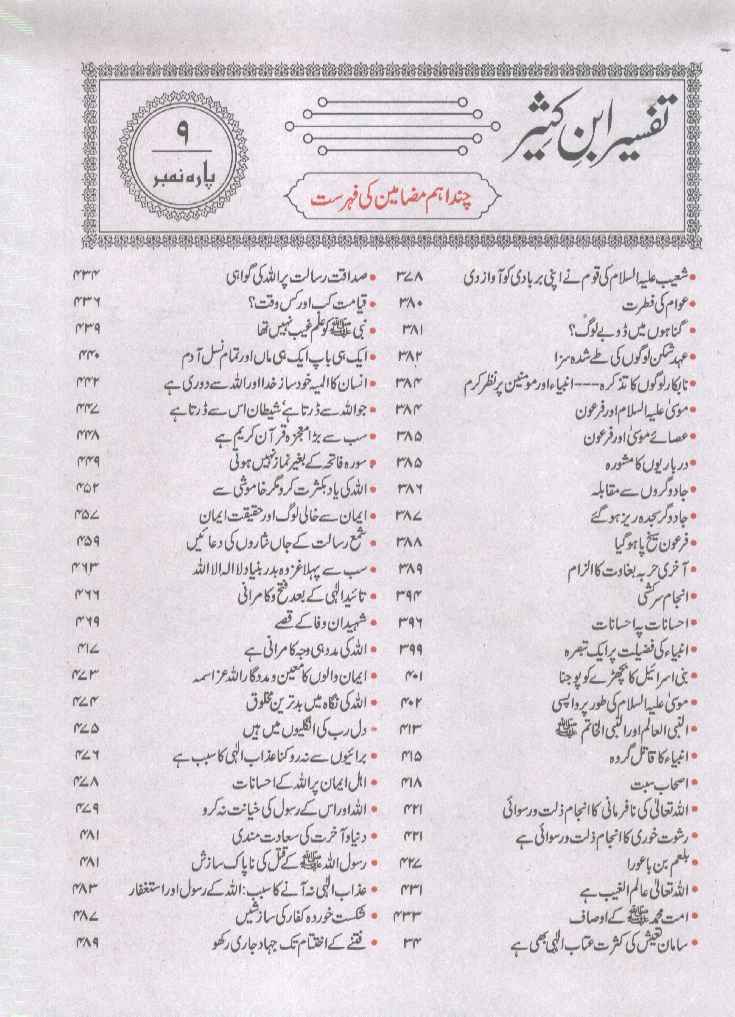 تفسیر ابنِ کثیر
۹
پارہ نمبر
چند اہم مضامین کی فہرست
• شعیب علیہ السلام کی قوم نے اپنی بربادی کو آواز دی ۳۷۸
• عوام کی فطرت ۳۸۰
• گناہوں میں ڈوبے لوگ؟ ۳۸۱
• عہد شکن لوگوں کی طے شدہ سزا ۳۸۲
• نابکار لوگوں کا تذکرہ --- انبیاء اور مومنین پر نظر کرم ۳۸۴
• موسیٰ علیہ السلام اور فرعون ۳۸۴
• عصائے موسیٰ اور فرعون ۳۸۵
• درباریوں کا مشورہ ۳۸۵
• جادوگروں سے مقابلہ ۳۸۶
• جادوگر سجدہ ریز ہو گئے ۳۸۷
• فرعون سیخ پا ہو گیا ۳۸۸
• آخری حربہ بغاوت کا الزام ۳۸۹
• انجام سرکشی ۳۹۴
• احسانات پہ احسانات ۳۹۶
• انبیاء کی فضیلت پر ایک تبصرہ ۳۹۹
• بنی اسرائیل کا بچھڑے کو پوجنا ۴۰۱
• موسیٰ علیہ السلام کی طور پر واپسی ۴۰۲
• النبی العالم اور النبی الخاتم ﷺ ۴۱۳
• انبیاء کا قاتل گروہ ۴۱۵
• اصحاب سبت ۴۱۸
• اللہ تعالیٰ کی نافرمانی کا انجام ذلت و رسوائی ۴۲۱
• رشوت خوری کا انجام ذلت و رسوائی ہے ۴۲۱
• بلعم بن باعورا ۴۲۷
• اللہ تعالیٰ عالم الغیب ہے ۴۳۱
• امت محمد ﷺ کے اوصاف ۴۳۳
• سامان تعیش کی کثرت عتاب الٰہی بھی ہے ۳۴
• صداقت رسالت پر اللہ کی گواہی ۴۳۴
• قیامت کب اور کس وقت؟ ۴۳۶
• نبی ﷺ کو علم غیب نہیں تھا ۴۳۹
• ایک ہی باپ ایک ہی ماں اور تمام نسل آدم ۴۴۰
• انسان کا المیہ خود ساز خدا اور اللہ سے دوری ہے ۴۴۲
• جو اللہ سے ڈرتا ہے، شیطان اس سے ڈرتا ہے ۴۴۷
• سب سے بڑا معجزہ قرآن کریم ہے ۴۴۸
• سورہ فاتحہ کے بغیر نماز نہیں ہوتی ۴۴۹
• اللہ کی یاد بکثرت کرو مگر خاموشی سے ۴۵۲
• ایمان سے خالی لوگ اور حقیقت ایمان ۴۵۷
• شمع رسالت کے جاں نثاروں کی دعائیں ۴۵۹
• سب سے پہلا غزوہ بدر بنیاد لا الہ الا اللہ ۴۶۳
• تائید الٰہی کے بعد فتح و کامرانی ۴۶۶
• شہیدان وفا کے قصے ۴۶۹
• اللہ کی مدد ہی وجہ کامرانی ہے ۴۱۷
• ایمان والوں کا معین و مددگار اللہ عز اسمہ ۴۷۳
• اللہ کی نگاہ میں بدترین مخلوق ۴۷۴
• دل رب کی انگلیوں میں ہیں ۴۷۵
• برائیوں سے نہ روکنا عذاب الٰہی کا سبب ہے ۴۷۶
• اہل ایمان پر اللہ کے احسانات ۴۷۸
• اللہ اور اس کے رسول کی خیانت نہ کرو ۴۷۹
• دنیا و آخرت کی سعادت مندی ۴۸۱
• رسول اللہ ﷺ کے قتل کی ناپاک سازش ۴۸۱
• عذاب الٰہی نہ آنے کا سبب: اللہ کے رسول اور استغفار ۴۸۳
• شکست خوردہ کفار کی سازشیں ۴۸۷
• فتنے کے اختتام تک جہاد جاری رکھو ۴۸۹